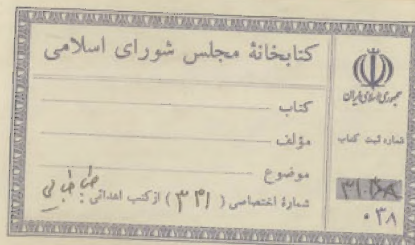 کتابخانهٔ مجلس شورای اسلامی
کتاب
مؤلف
موضوع
شمارهٔ اختصاصی ( ۳۴۱ ) از کتب اهدائی
جمهوری اسلامی ایران
شماره ثبت کتاب
۰۳۸